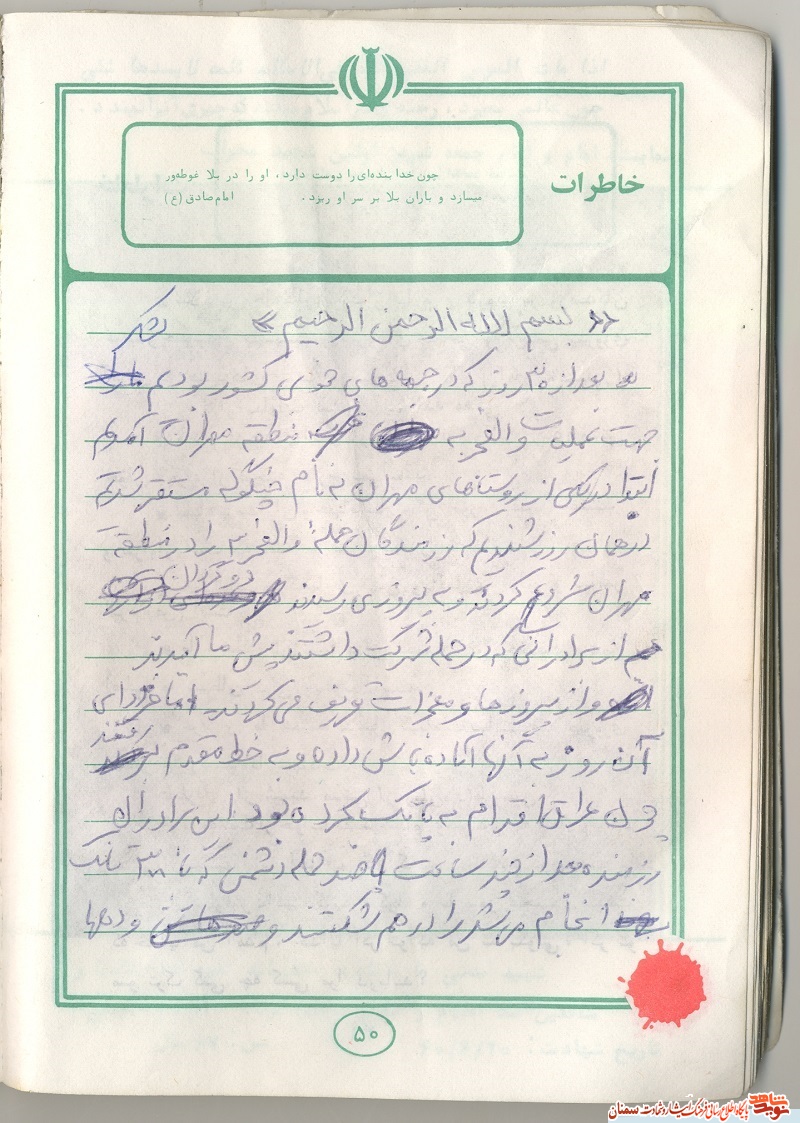 خاطرات
چون خدا بنده‌ای را دوست دارد، او را در بلا غوطه‌ور
میسازد و باران بلا بر سر او ریزد. امام صادق (ع)
«بسم الله الرحمن الرحیم»
لشکر
بعد از ۲۵ روز که در جبهه های جنوبی کشور بودیم
جهت عملیات والفجر به منطقه مهران آمدیم
ابتدا در یکی از روستاهای مهران به نام چنگوله مستقر شدیم
در همان روز شنیدیم که رزمندگان حمله والفجر ۳ را در منطقه
مهران شروع کردند و به پیروزی رسیدند
از برادرانی که در حمله شرکت داشتند پیش ما آمدند
و از پیروزیها و معجزات تعریف می کردند اما فردای
آن روز به آنها آماده باش داده و به خط مقدم رفتند
چون عراق اقدام به پاتک کرده بود این برادران
رزمنده بعد از چند ساعت حمله دشمن که با ۳۰۰ تانک
انجام می شد را در هم شکستند و دهها
۵۰
نوید شاهد
پایگاه اطلاع رسانی فرهنگ ایثار و شهادت سمنان